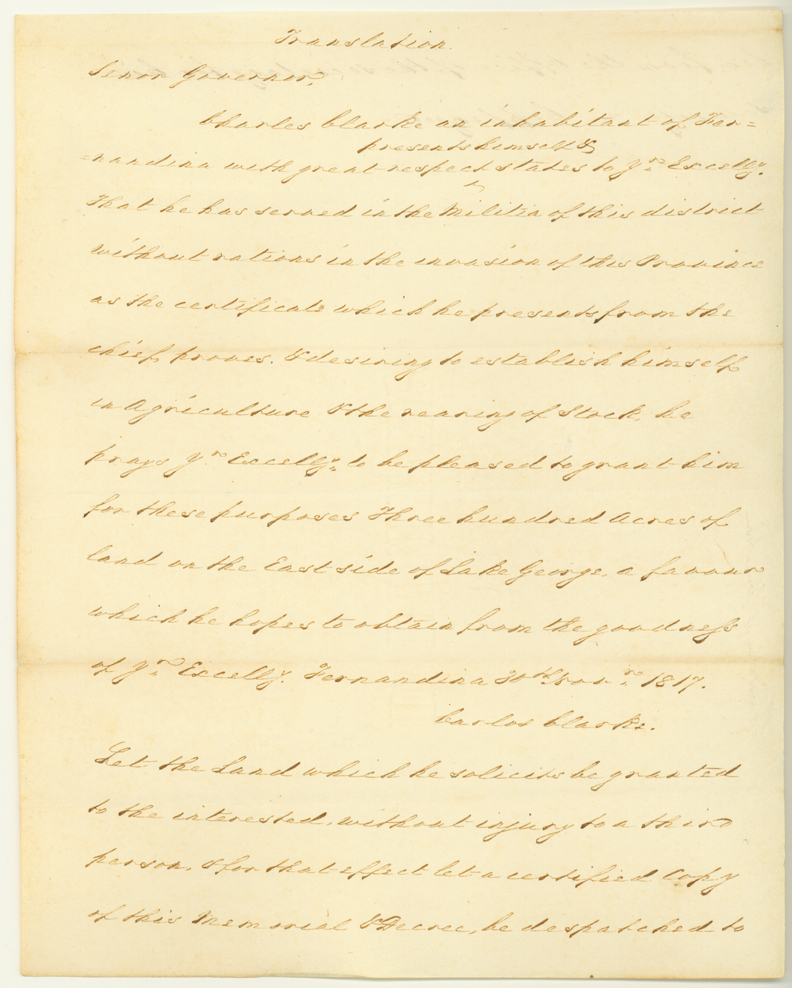 Translation.
Senor Governor,
Charles Clarke an inhabitant of Fer=
presents himself &
=nandina with great respect states to Yr. Excelly.
That he has served in the Militia of this district
without rations in the invasion of this Province
as the certificate which he presents from the
chief proves. & desiring to establish himself
in Agriculture & the rearing of Stock, he
prays Yr. Excelly. to be pleased to grant him
for these purposes Three hundred Acres of
land on the East side of Lake George, a favour
which he hopes to obtain from the goodness
of Yr. Excelly. Fernandina 30th 1817.
Carlos Clarke.
Let the Land which he solicits be granted
to the interested, without injury to a third
person, & for that effect let a certified Copy
of this Memorial & Decree, be despatched to